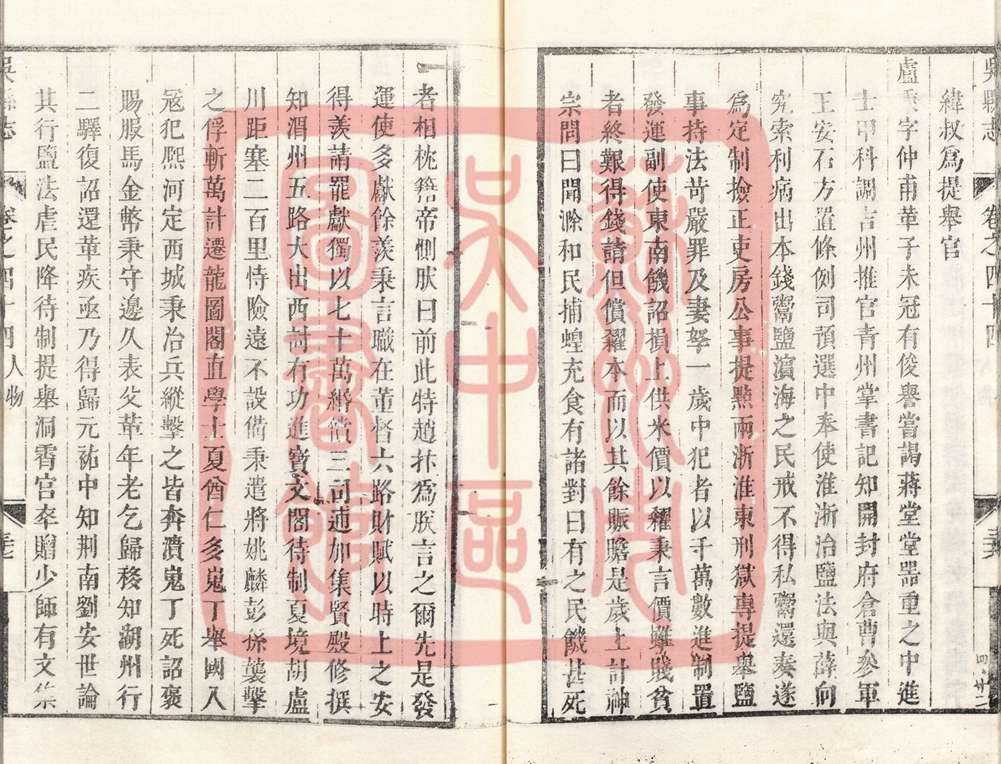 吳縣志
卷之四十四
緯叔爲提舉官
盧秉字仲甫革子未冠有俊譽嘗謁蔣堂堂器重之中進
士甲科調吉州推官青州掌書記知開封府倉曹參軍
王安石方置條例司預選中奉使淮浙治鹽法與薛向
究索利病出本錢鬻鹽濵海之民戒不得私鬻還奏遂
爲定制撿正吏房公事提㸃兩浙淮東刑獄專提舉鹽
事持法苛嚴罪及妻孥一歲中犯者以千萬數進制置
發運副使東南饑詔損上供米價以糴秉言價雖賤貧
者終艱得錢請但償糴本而以其餘賑贍是歲上計神
宗問曰聞滁和民捕蝗充食有諸對曰有之民饑甚死
者相枕籍帝惻朕曰前此特趙抃爲朕言之爾先是發
運使多獻餘羨秉言職在董督六路財賦以時上之安
得羨請罷獻獨以七十萬緡償三司逋加集賢殿修撰
知渭州五路大出西討有功進寶文閣待制夏境胡盧
川距塞二百里恃險遠不設備秉遣將姚麟彭孫襲擊
之俘斬萬計遷龍圖閣直學士夏酋仁多嵬丁舉國入
冦犯熈河定西城秉治兵縱擊之皆奔潰嵬丁死詔褒
賜服馬金幣秉守邊久表父革年老乞歸移知湖州行
二驛復詔還革疾亟乃得歸元祐中知荆南劉安世論
其行鹽法虐民降待制提舉洞霄宮卒贈少師有文集
吳縣志
卷之四十四 人物
蘇州市
吳中區
圖書館